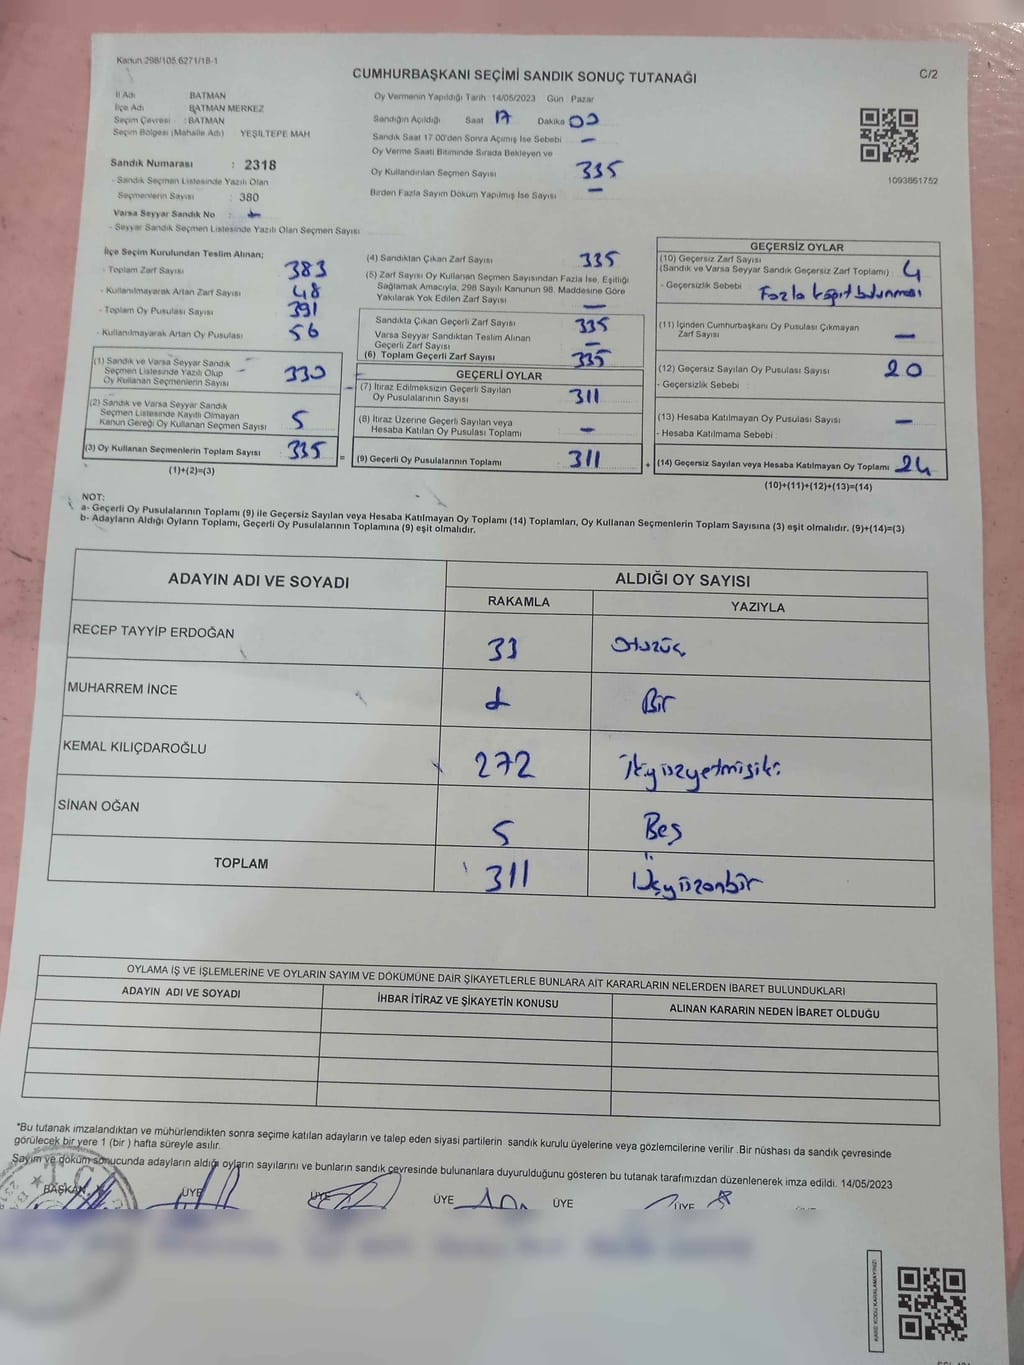 Kanun 298/105,6271/18-1
CUMHURBAŞKANI SEÇİMİ SANDIK SONUÇ TUTANAĞI
C/2
İl Adı BATMAN
İlçe Adı BATMAN MERKEZ
Seçim Çevresi : BATMAN
Seçim Bölgesi (Mahalle Adı) YEŞİLTEPE MAH
Sandık Numarası : 2318
- Sandık Seçmen Listesinde Yazılı Olan
Seçmenlerin Sayısı : 380
Varsa Seyyar Sandık No : -
- Seyyar Sandık Seçmen Listesinde Yazılı Olan Seçmen Sayısı
Oy Vermenin Yapıldığı Tarih 14/05/2023 Gün Pazar
Sandığın Açıldığı Saat 17 Dakika 00
Sandık Saat 17.00'den Sonra Açımış İse Sebebi -
Oy Verme Saati Bitiminde Sırada Bekleyen ve
Oy Kullandırılan Seçmen Sayısı 335
Birden Fazla Sayım Döküm Yapılmış İse Sayısı -
1093861752
İlçe Seçim Kurulundan Teslim Alınan;
- Toplam Zarf Sayısı 383
- Kullanılmayarak Artan Zarf Sayısı 48
- Toplam Oy Pusulası Sayısı 391
- Kullanılmayarak Artan Oy Pusulası 56
(1) Sandık ve Varsa Seyyar Sandık
Seçmen Listesinde Yazılı Olup
Oy Kullanan Seçmenlerin Sayısı 330
(2) Sandık ve Varsa Seyyar Sandık
Seçmen Listesinde Kayıtlı Olmayan
Kanun Gereği Oy Kullanan Seçmen Sayısı 5
(3) Oy Kullanan Seçmenlerin Toplam Sayısı 335
(1)+(2)=(3)
(4) Sandıktan Çıkan Zarf Sayısı 335
(5) Zarf Sayısı Oy Kullanan Seçmen Sayısından Fazla İse, Eşitliği
Sağlamak Amacıyla, 298 Sayılı Kanunun 98. Maddesine Göre
Yakılarak Yok Edilen Zarf Sayısı -
Sandıkta Çıkan Geçerli Zarf Sayısı 335
Varsa Seyyar Sandıktan Teslim Alınan
Geçerli Zarf Sayısı -
(6) Toplam Geçerli Zarf Sayısı 335
GEÇERLİ OYLAR
(7) İtiraz Edilmeksizin Geçerli Sayılan
Oy Pusulalarının Sayısı 311
(8) İtiraz Üzerine Geçerli Sayılan veya
Hesaba Katılan Oy Pusulası Toplamı -
= (9) Geçerli Oy Pusulalarının Toplamı 311 +
GEÇERSİZ OYLAR
(10) Geçersiz Zarf Sayısı
(Sandık ve Varsa Seyyar Sandık Geçersiz Zarf Toplamı) 4
- Geçersizlik Sebebi Fazla kağıt bulunması
(11) İçinden Cumhurbaşkanı Oy Pusulası Çıkmayan
Zarf Sayısı -
(12) Geçersiz Sayılan Oy Pusulası Sayısı 20
- Geçersizlik Sebebi :
(13) Hesaba Katılmayan Oy Pusulası Sayısı -
- Hesaba Katılmama Sebebi :
(14) Geçersiz Sayılan veya Hesaba Katılmayan Oy Toplamı 24
(10)+(11)+(12)+(13)=(14)
NOT:
a- Geçerli Oy Pusulalarının Toplamı (9) ile Geçersiz Sayılan veya Hesaba Katılmayan Oy Toplamı (14) Toplamları, Oy Kullanan Seçmenlerin Toplam Sayısına (3) eşit olmalıdır. (9)+(14)=(3)
b- Adayların Aldığı Oyların Toplamı, Geçerli Oy Pusulalarının Toplamına (9) eşit olmalıdır.
ADAYIN ADI VE SOYADI
ALDIĞI OY SAYISI
RAKAMLA YAZIYLA
RECEP TAYYİP ERDOĞAN 33 Otuzüç
MUHARREM İNCE 1 Bir
KEMAL KILIÇDAROĞLU 272 İkiyüzyetmişiki
SİNAN OĞAN 5 Beş
TOPLAM 311 Üçyüzonbir
OYLAMA İŞ VE İŞLEMLERİNE VE OYLARIN SAYIM VE DÖKÜMÜNE DAİR ŞİKAYETLERLE BUNLARA AİT KARARLARIN NELERDEN İBARET BULUNDUKLARI
ADAYIN ADI VE SOYADI İHBAR İTİRAZ VE ŞİKAYETİN KONUSU ALINAN KARARIN NEDEN İBARET OLDUĞU
*Bu tutanak imzalandıktan ve mühürlendikten sonra seçime katılan adayların ve talep eden siyasi partilerin sandık kurulu üyelerine veya gözlemcilerine verilir .Bir nüshası da sandık çevresinde
görülecek bir yere 1 (bir ) hafta süreyle asılır.
Sayım ve döküm sonucunda adayların aldığı oyların sayılarını ve bunların sandık çevresinde bulunanlara duyurulduğunu gösteren bu tutanak tarafımızdan düzenlenerek imza edildi. 14/05/2023
BAŞKAN ÜYE ÜYE ÜYE ÜYE ÜYE
KARE KODU KARALAMAYINIZ!